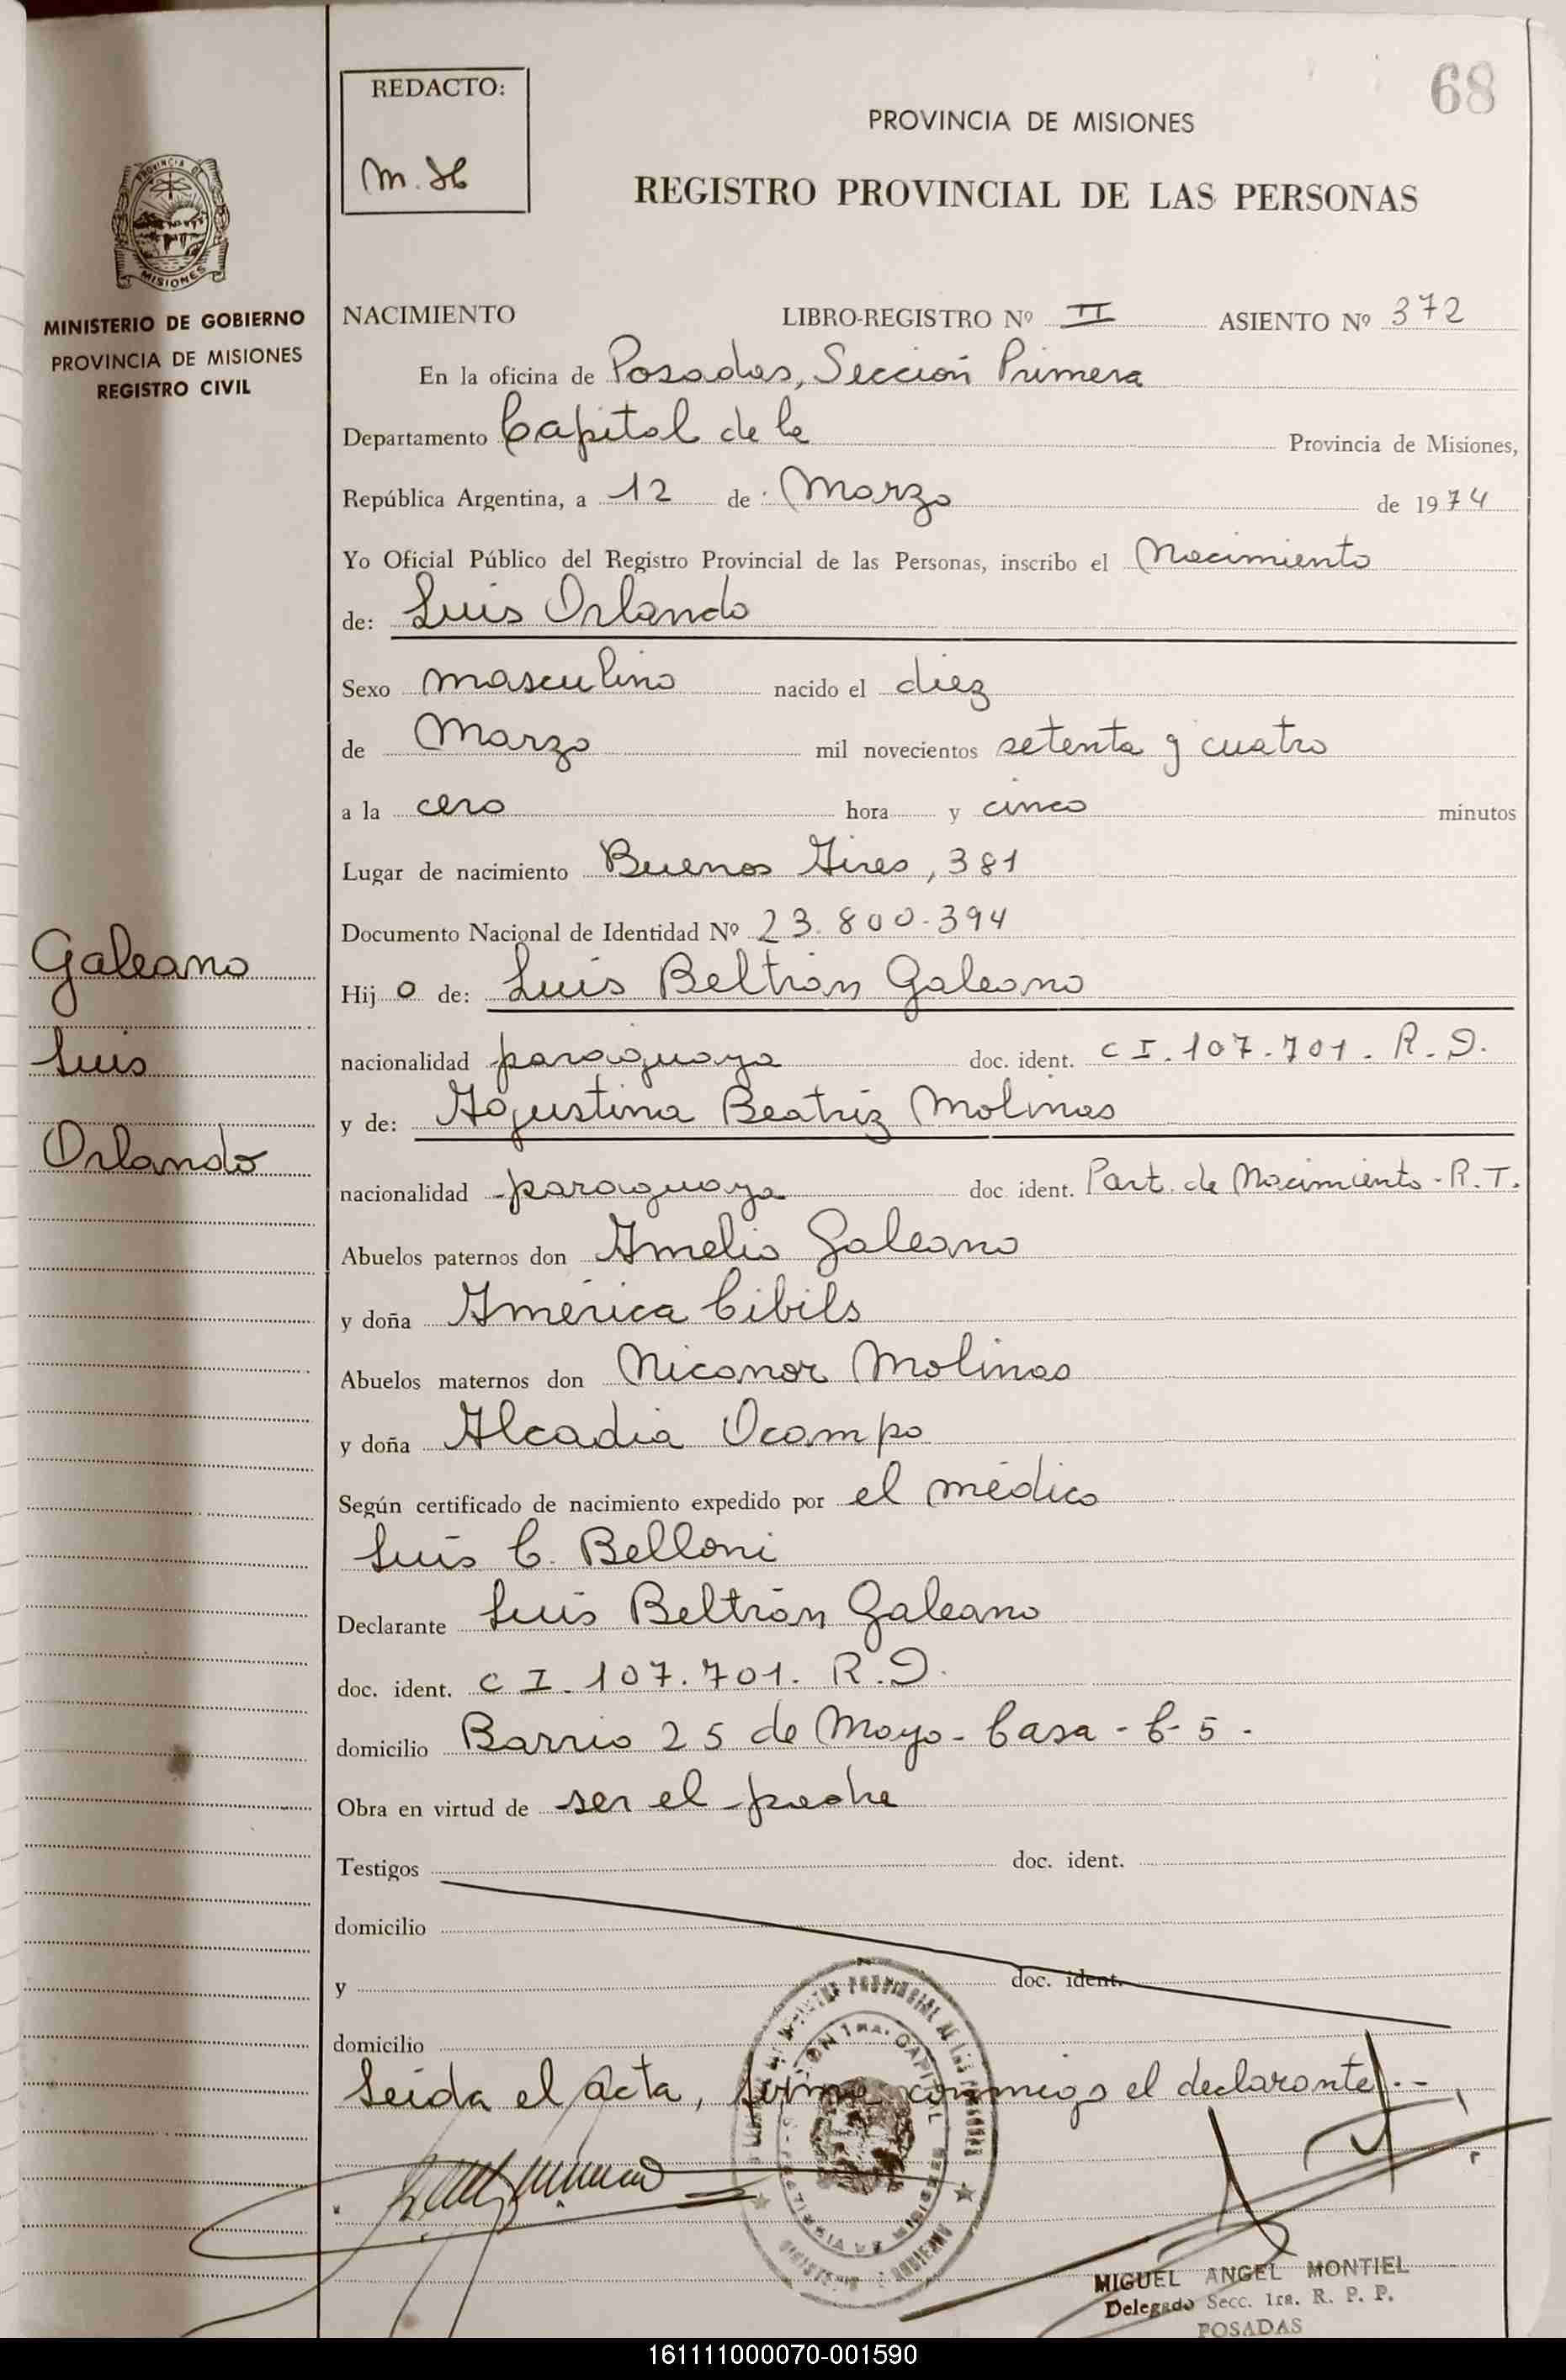 68
REDACTO:
M. H
PROVINCIA DE MISIONES
REGISTRO PROVINCIAL DE LAS PERSONAS
MISIONES
MINISTERIO DE GOBIERNO
PROVINCIA DE MISIONES
REGISTRO CIVIL
NACIMIENTO LIBRO-REGISTRO Nº II ASIENTO Nº 372
En la oficina de Posadas, Sección Primera
Departamento Capital de la Provincia de Misiones,
República Argentina, a 12 de Marzo de 1974
Yo Oficial Público del Registro Provincial de las Personas, inscribo el Nacimiento
de: Luis Orlando
Sexo masculino nacido el diez
de Marzo mil novecientos setenta y cuatro
a la cero hora y cinco minutos
Lugar de nacimiento Buenos Aires, 381
Documento Nacional de Identidad Nº 23.800.394
Galeano
Luis
Orlando
Hijo de: Luis Beltrán Galeano
nacionalidad paraguaya doc. ident. C I. 107.701. R.D.
y de: Agustina Beatriz Molinas
nacionalidad paraguaya doc ident. Part. de Nacimiento - R.T.
Abuelos paternos don Amelio Galeano
y doña América Cibils
Abuelos maternos don Nicanor Molinas
y doña Alcadia Ocampo
Según certificado de nacimiento expedido por el médico
Luis C. Belloni
Declarante Luis Beltrán Galeano
doc. ident. C I. 107.701. R.D.
domicilio Barrio 25 de Mayo - Casa - C-5 -
Obra en virtud de ser el padre
Testigos doc. ident.
domicilio
y doc. ident.
domicilio
Leida el acta, firma conmigo el declarante.--
MIGUEL ANGEL MONTIEL
Delegado Secc. 1ra. R. P. P.
POSADAS
161111000070-001590